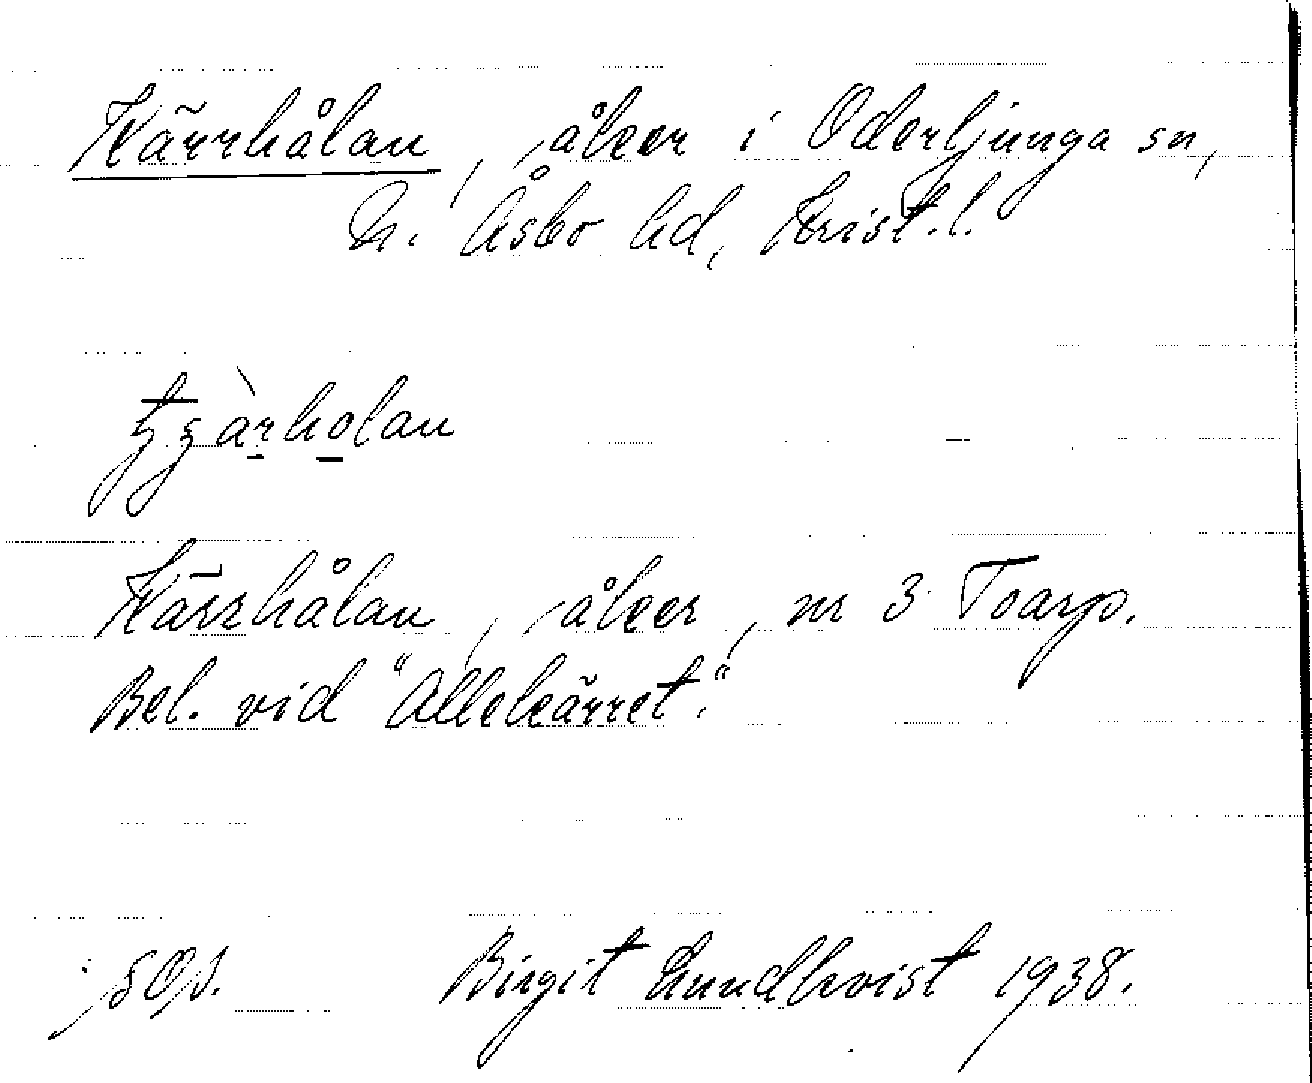 Kärrhålan, åker i Oderljunga sn,
N. Åsbo hd, Krist. l.
Kärrhålan, åker, nr 3 Toarp.
Bel. vid "Allekärret".
Birgit Lundkvist 1938.